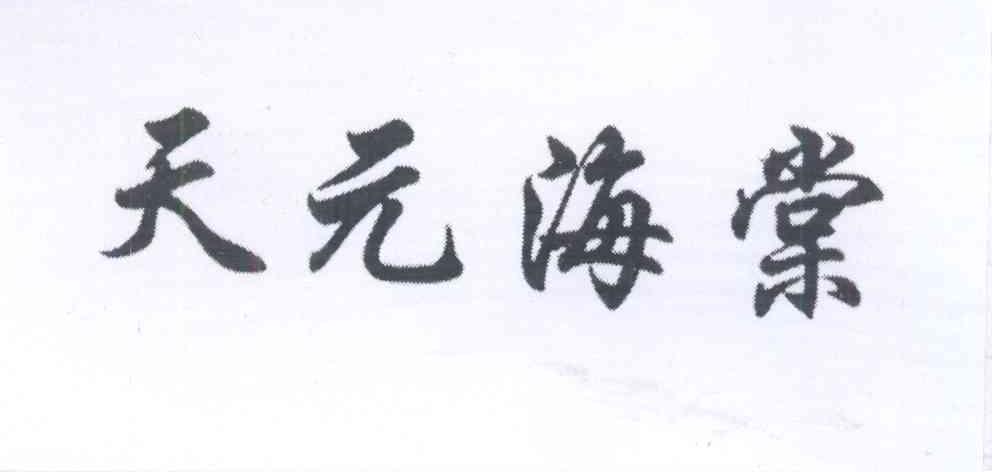 天元海棠